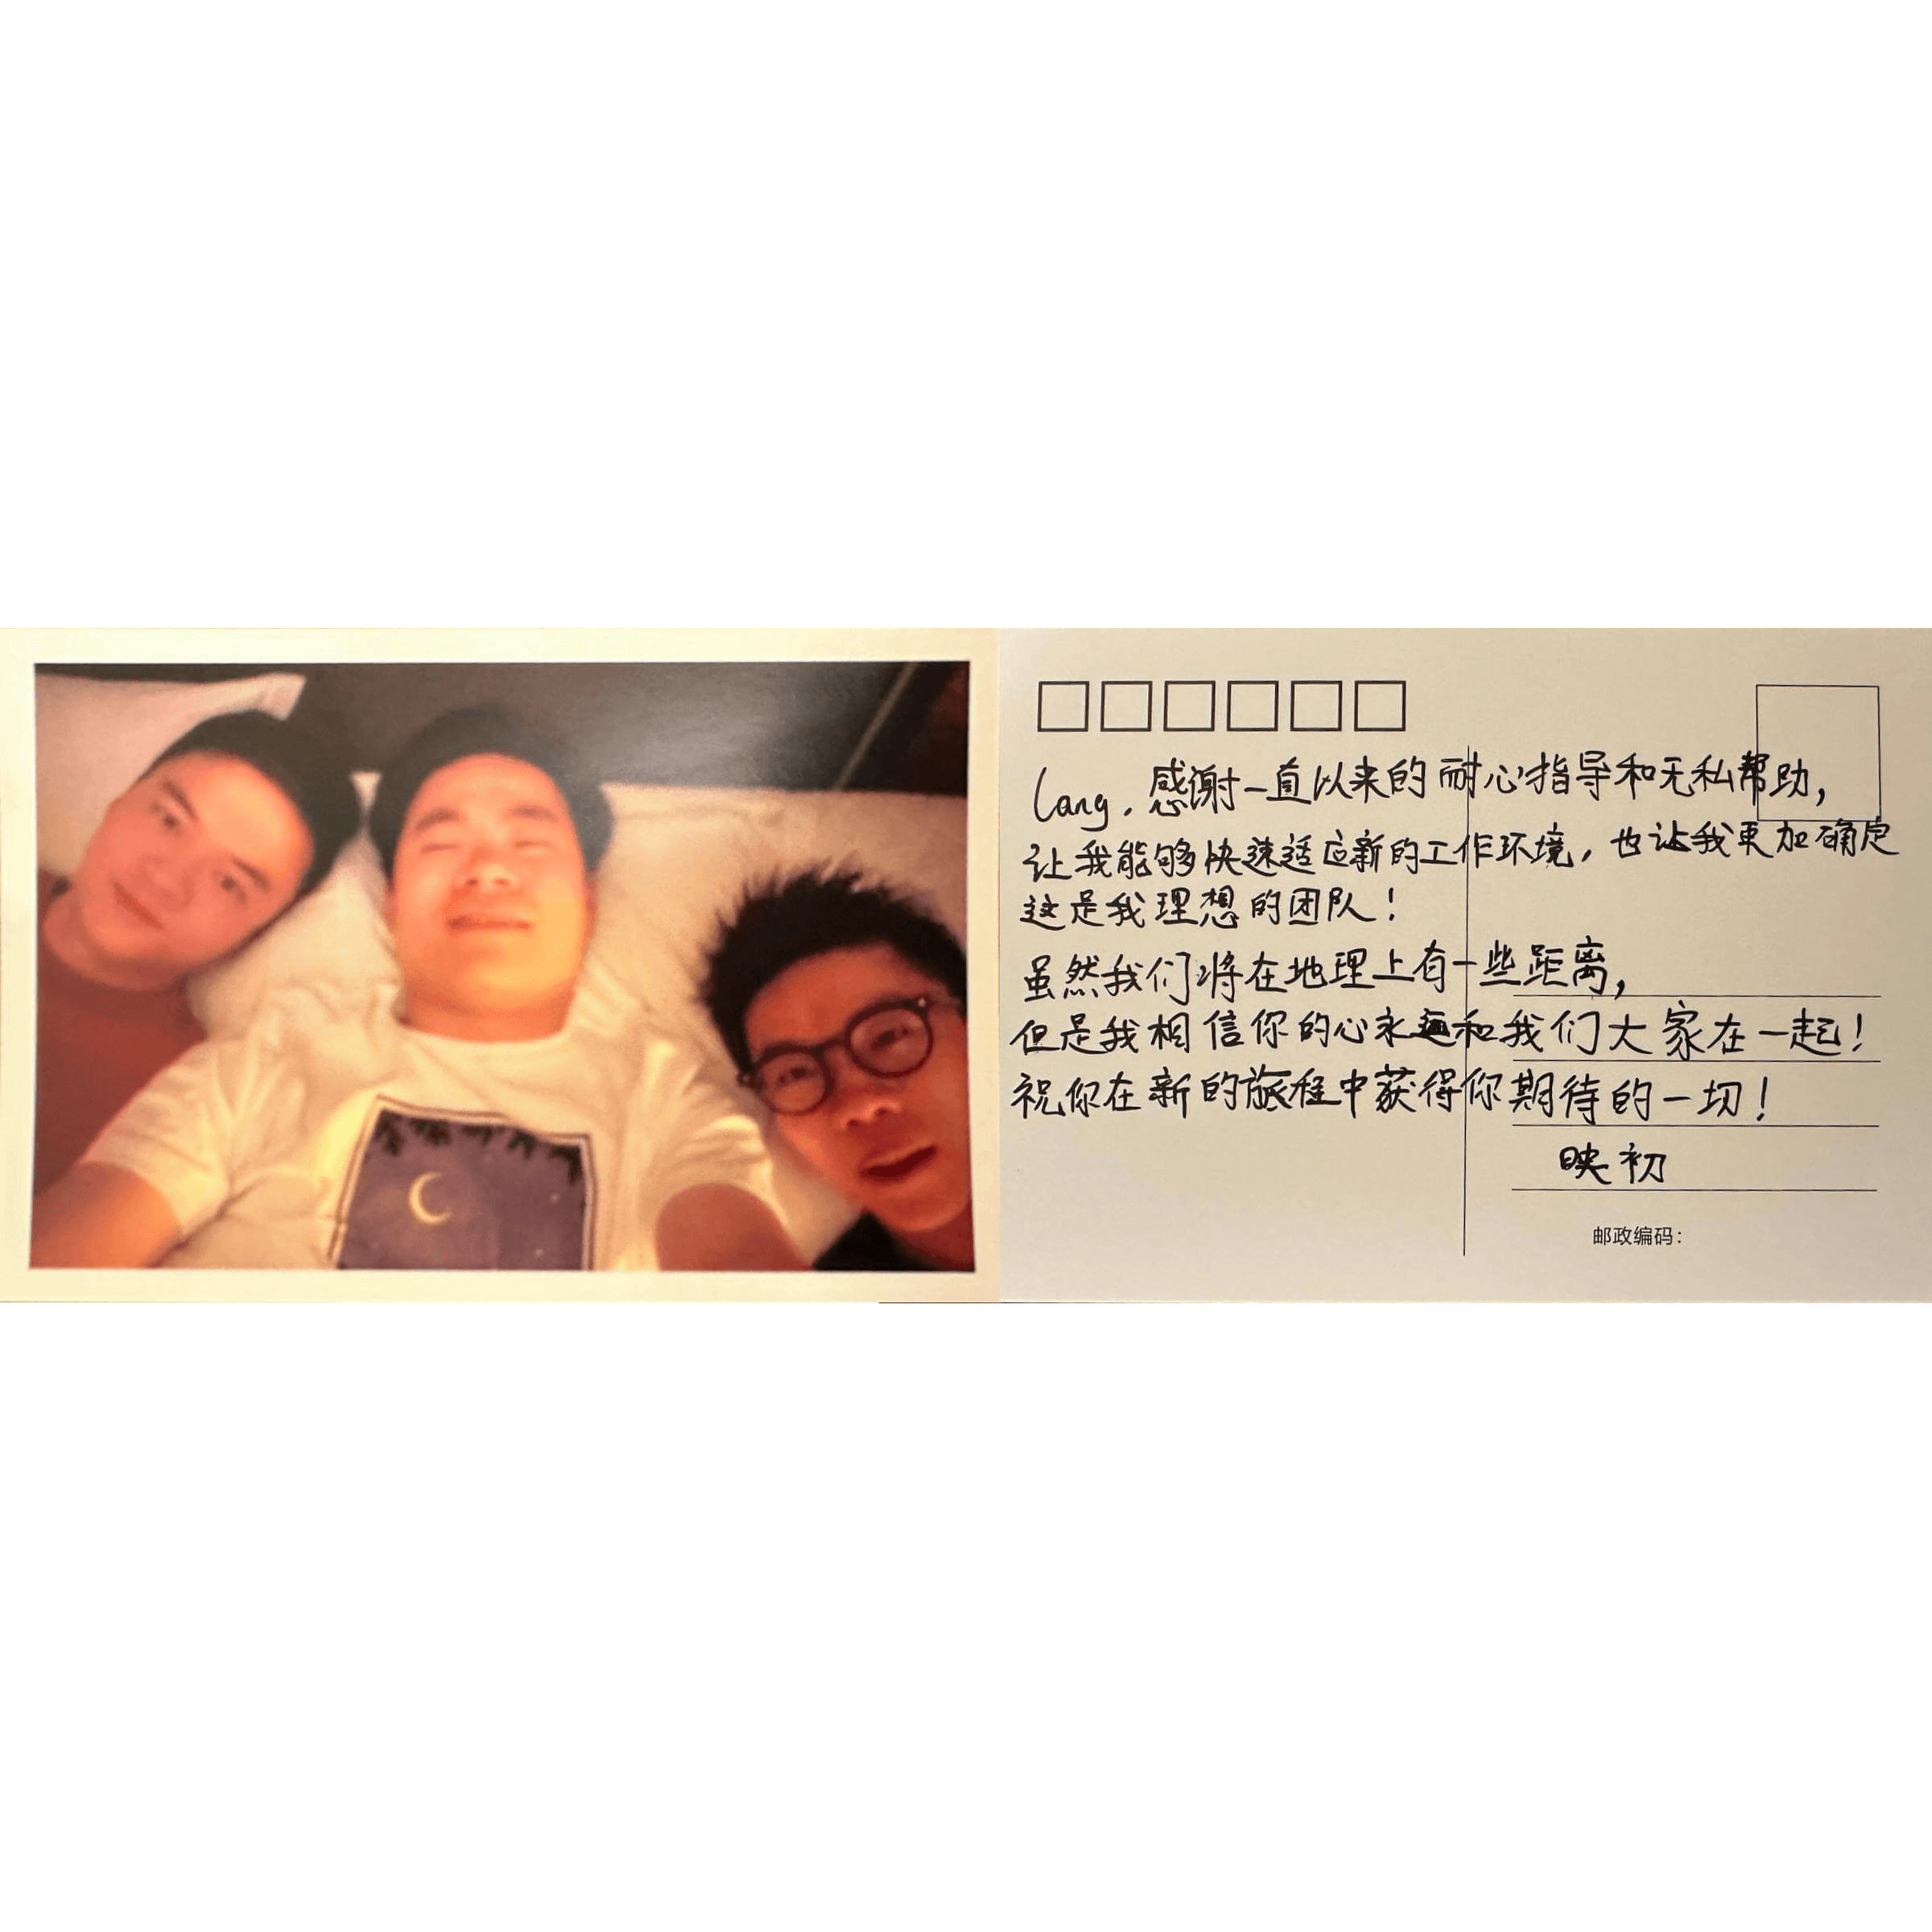 Lang，感谢一直以来的耐心指导和无私帮助，
让我能够快速适应新的工作环境，也让我更加确定
这是我理想的团队！
虽然我们将在地理上有一些距离，
但是我相信你的心永远和我们大家在一起！
祝你在新的旅程中获得你期待的一切！
映初
邮政编码：